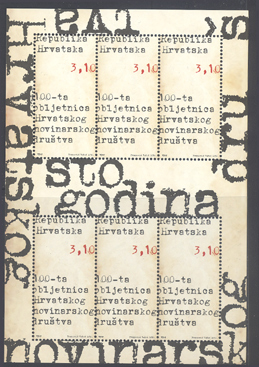 Republika
Hrvatska
3,10
100-ta
obljetnica
Hrvatskog
novinarskog
društva
Republika
Hrvatska
3,10
100-ta
obljetnica
Hrvatskog
novinarskog
društva
Republika
Hrvatska
3,10
100-ta
obljetnica
Hrvatskog
novinarskog
društva
sto
godina
Republika
Hrvatska
3,10
100-ta
obljetnica
Hrvatskog
novinarskog
društva
Republika
Hrvatska
3,10
100-ta
obljetnica
Hrvatskog
novinarskog
društva
Republika
Hrvatska
3,10
100-ta
obljetnica
Hrvatskog
novinarskog
društva
Hrvatskog
novinarsk
og
dru
štva